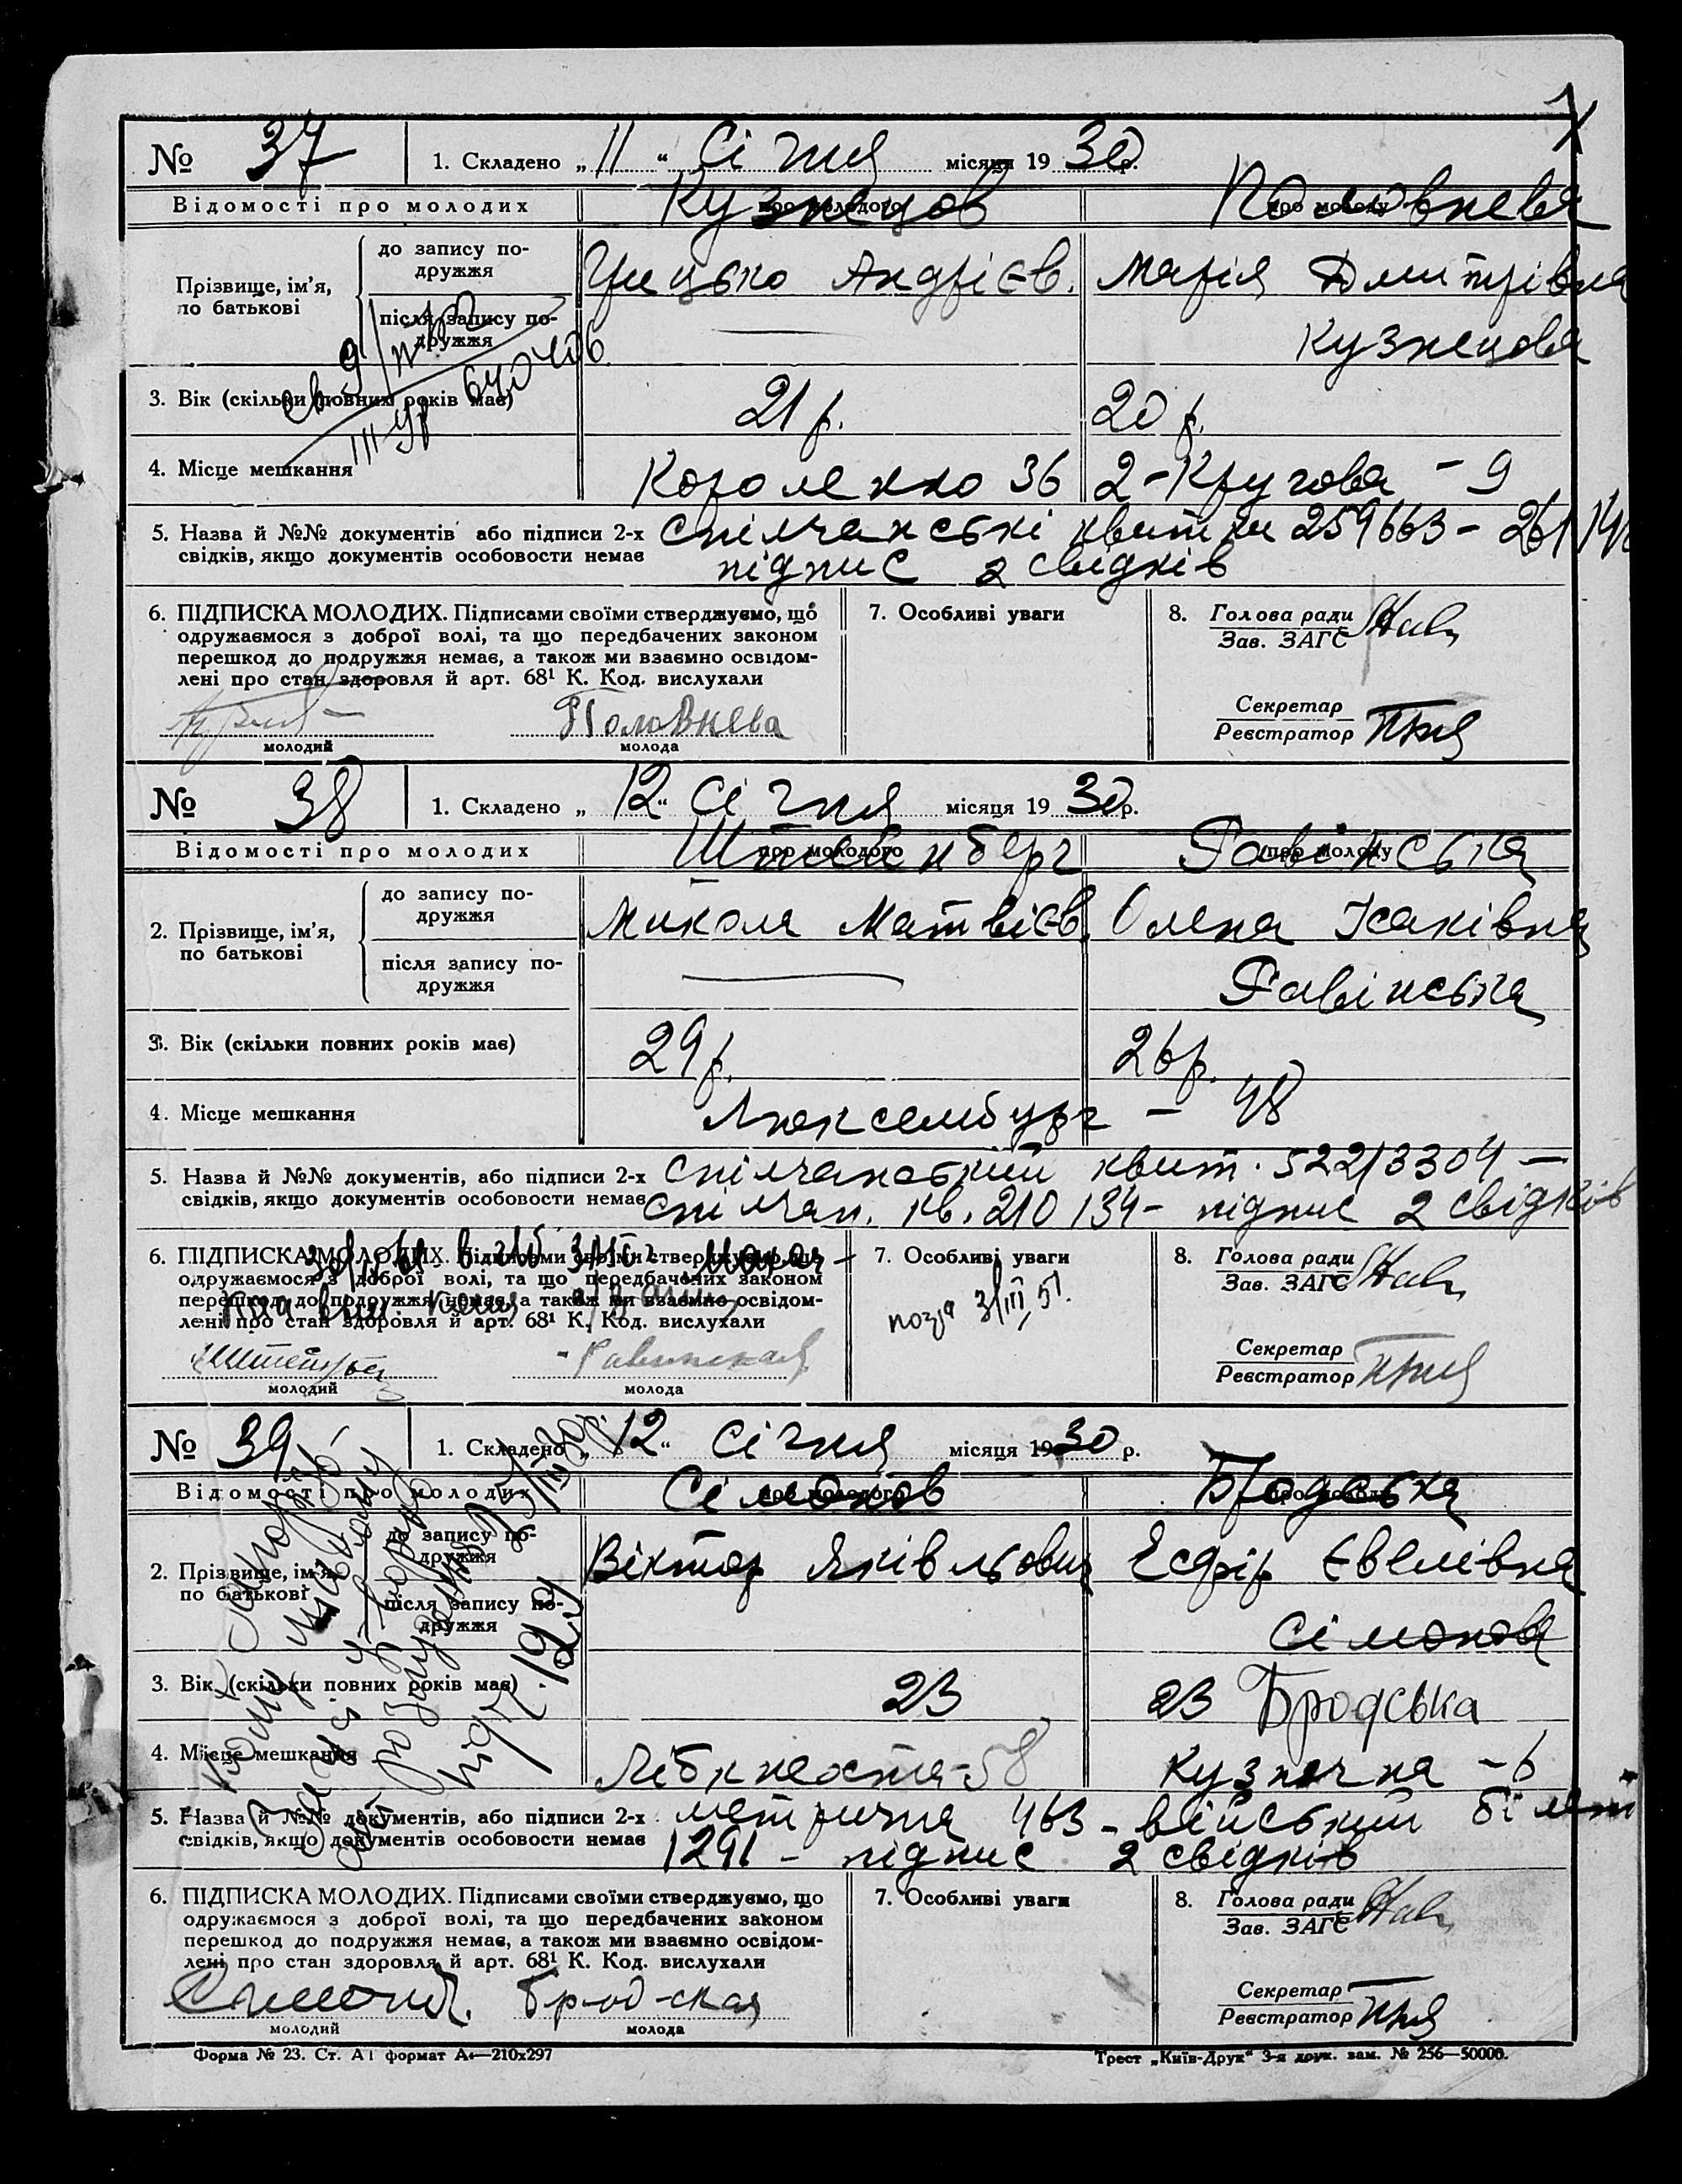 № 37 1. Складено „ 11 “ Січня місяця 19 30 р.
Відомості про молодих про молодого Кузнецов про молоду Половнева
Прізвище, ім’я, по батькові
до запису подружжя Грицько Андрієв. Марія Дмитрівна
після запису подружжя — Кузнецова
3. Вік (скільки повних років має) 21 р. 20 р.
4. Місце мешкання Короленко 36 2-Кругова - 9
5. Назва й №№ документів або підписи 2-х спілчанські квитки 259663 -
свідків, якщо документів особовости немає підпис 2 свідків
6. ПІДПИСКА МОЛОДИХ. Підписами своїми стверджуємо, що
одружаємося з доброї волі, та що передбачених законом
перешкод до подружжя немає, а також ми взаємно освідом-
лені про стан здоровля й арт. 68¹ К. Код. вислухали
Половнева
молодий молода
7. Особливі уваги
8. Голова ради
Зав. ЗАГС
Секретар
Реєстратор
№ 38 1. Складено „ 12 “ Січня місяця 19 30 р.
Відомості про молодих про молодого Штейнберг про молоду Равінська
2. Прізвище, ім’я, по батькові
до запису подружжя Микола Матвієв. Олена Ісаківна
після запису подружжя — Равінська
3. Вік (скільки повних років має) 29 р. 26 р.
4. Місце мешкання Люксембург - 48
5. Назва й №№ документів, або підписи 2-х спілчанський квит. 522/3304 —
свідків, якщо документів особовости немає спілчан. кв. 210134- підпис 2 свідків
6. ПІДПИСКА МОЛОДИХ. Підписами своїми стверджуємо, що
одружаємося з доброї волі, та що передбачених законом
перешкод до подружжя немає, а також ми взаємно освідом-
лені про стан здоровля й арт. 68¹ К. Код. вислухали
Равинская
молодий молода
7. Особливі уваги
31/III 51.
8. Голова ради
Зав. ЗАГС
Секретар
Реєстратор
№ 39 1. Складено „ 12 “ Січня місяця 19 30 р.
Відомості про молодих про молодого Сімонов про молоду Бродська
2. Прізвище, ім’я, по батькові
до запису подружжя Віктор Яківльович Есфір Євелівна
після запису подружжя Сімонова
3. Вік (скільки повних років має) 23 23 Бродська
4. Місце мешкання Лібкнехта-58 Кузнечна - 6
5. Назва й №№ документів, або підписи 2-х метрична 463 - війський білет
свідків, якщо документів особовости немає 1291 - підпис 2 свідків
6. ПІДПИСКА МОЛОДИХ. Підписами своїми стверджуємо, що
одружаємося з доброї волі, та що передбачених законом
перешкод до подружжя немає, а також ми взаємно освідом-
лені про стан здоровля й арт. 68¹ К. Код. вислухали
Бродская
молодий молода
7. Особливі уваги
8. Голова ради
Зав. ЗАГС
Секретар
Реєстратор
Форма № 23. Ст. А1 формат А4—210x297 Трест „Київ-Друк“ 3-я друк. зам. № 256—50000.